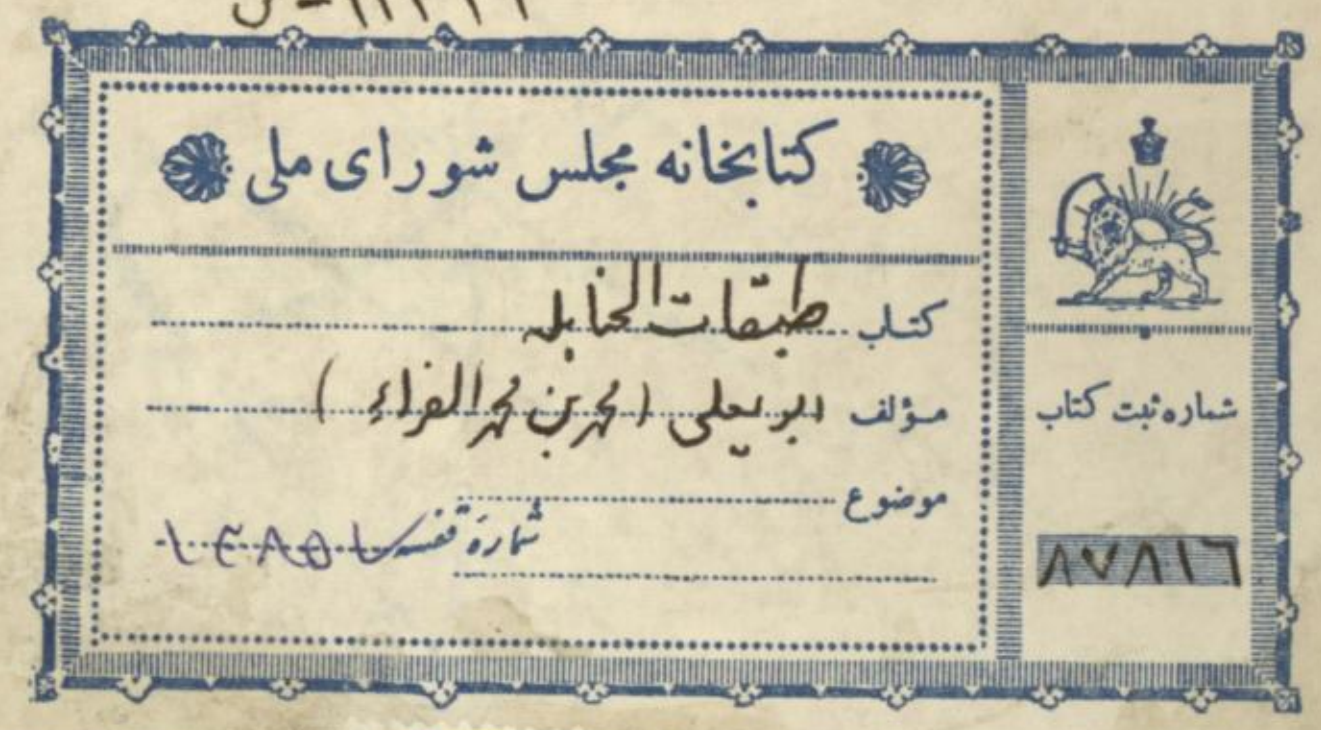 کتابخانه مجلس شورای ملی
کتاب طبقات الحنابله
مؤلف ابو یعلی (محمد بن محمد الفراء)
موضوع
شماره قفسه
شماره ثبت کتاب
۸۷۸۱٦